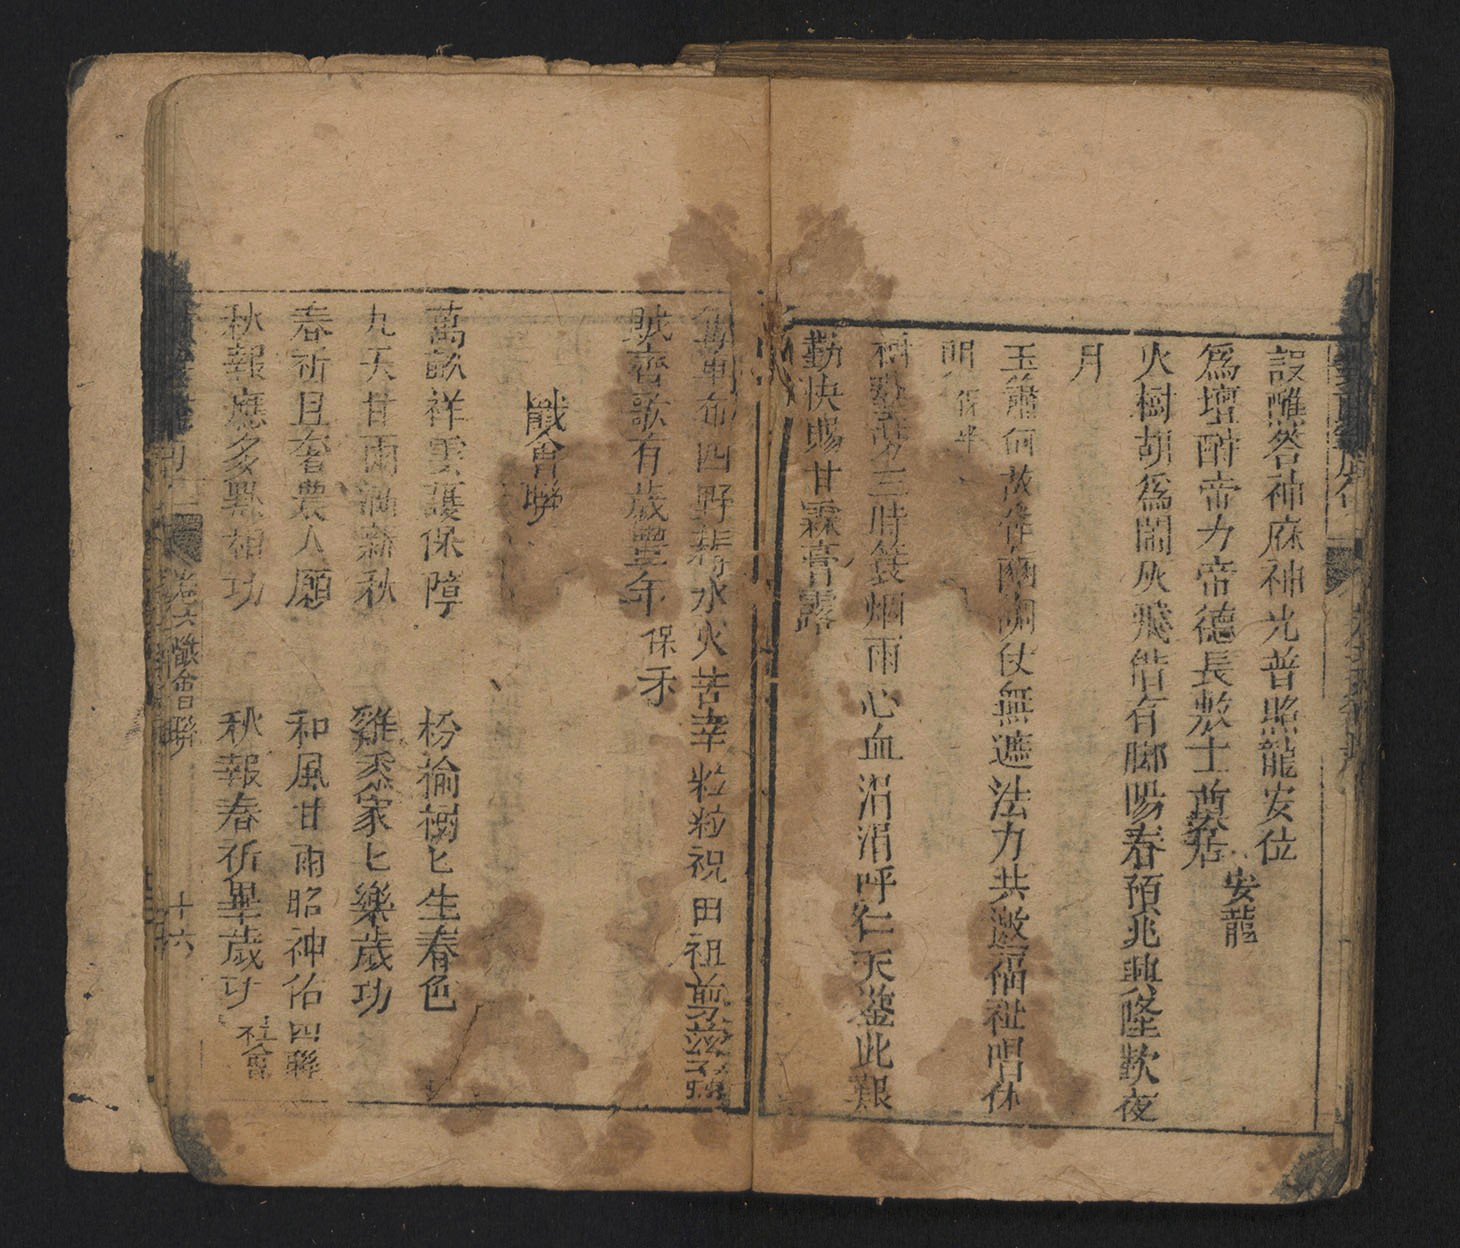 設醮荅神庥神光普照龍安位
爲壇酧帝力帝德長敷士奠居 安龍
火樹胡爲閙灰飛皆有脚陽春預兆興隆歎夜
月
玉簫何故作幽調仗無遮法力共邀福祉唱休
明
三時簑烟雨心血涓涓呼仁天鑒此艱
勤快賜甘霖膏露
布四野 水火苦幸粒粒祝田祖剪
賊齊歌有歲豐年 保禾
戲會聯
萬畝祥雲護保障 枌榆樹匕生春色
九天甘雨滴新秋 雞黍家匕樂歲功
春祈且奢農人願 和風甘雨昭神佑 四聯
秋報應多 功 秋報春祈畢歲功 社會
卷六 會聯
十六